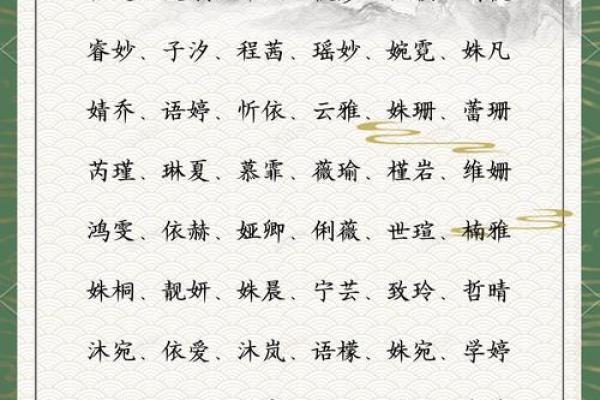 睿妙、子汐、程茜、瑶妙、婉霓、姝凡
婧乔、语婷、忻依、云雅、姝珊、蕾珊
芮瑾、琳夏、慕霏、薇瑜、槿岩、维姗
鸿雯、依赫、娅卿、俐薇、世瑄、楠雅
姝桐、靓妍、姝晨、宁芸、致玲、哲晴
沐宛、依爱、沐岚、语檬、姝宛、学婷